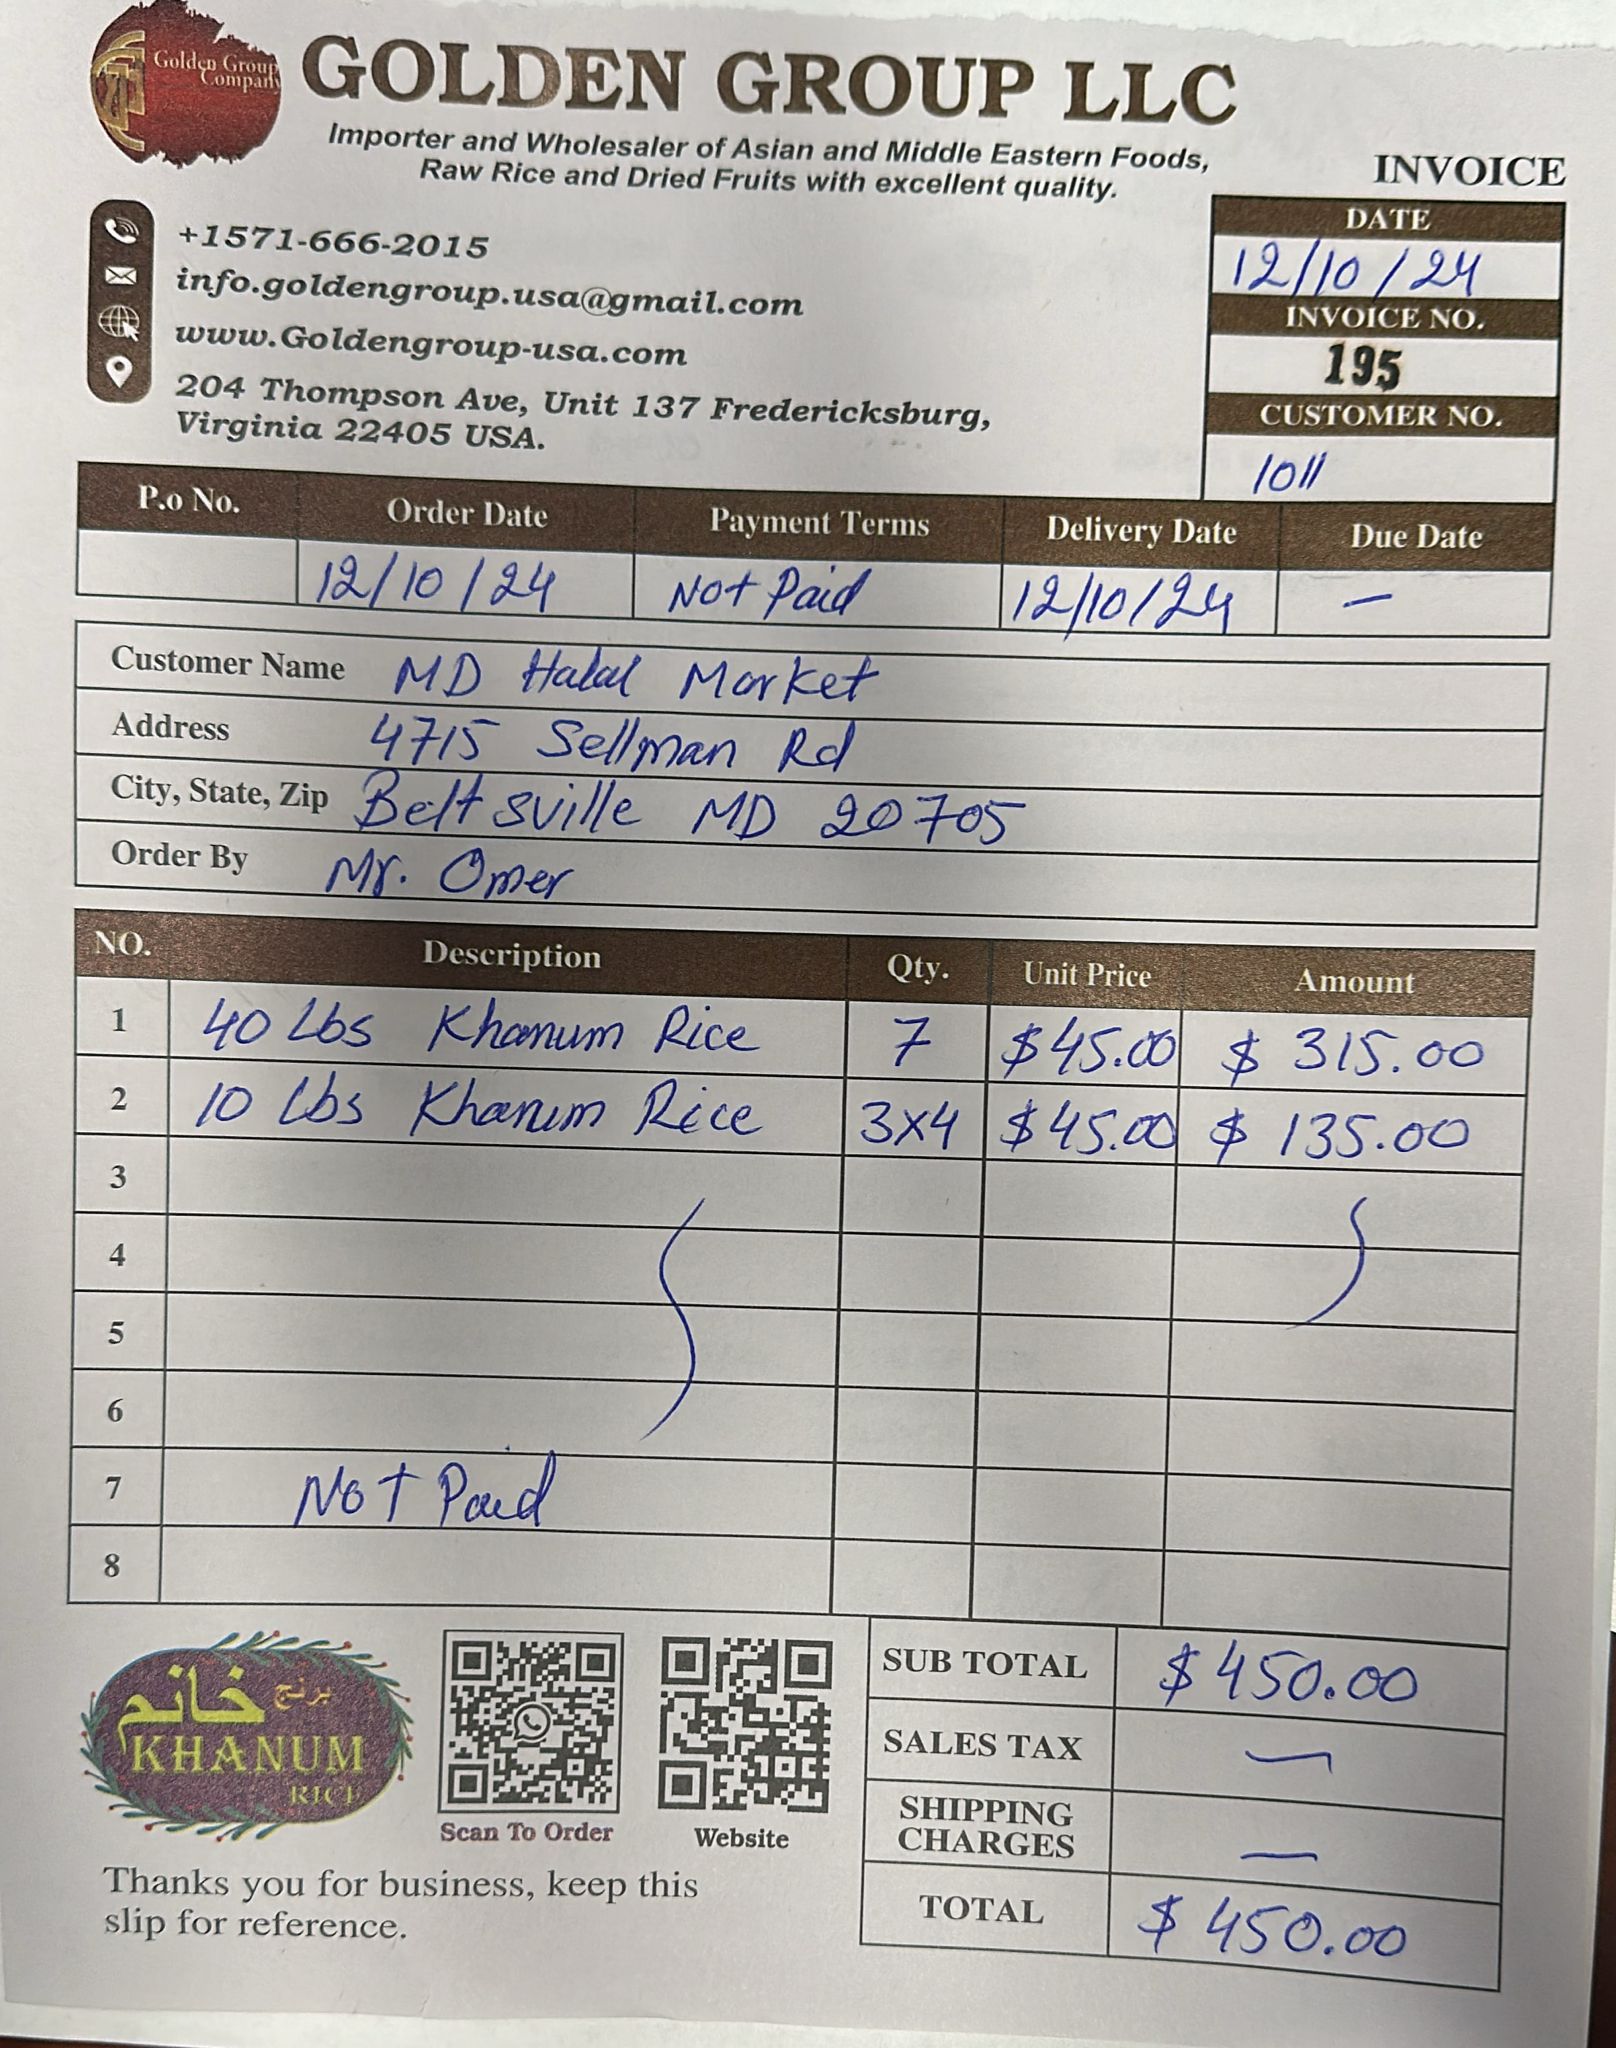 Golden Group
Company
GOLDEN GROUP LLC
Importer and Wholesaler of Asian and Middle Eastern Foods,
Raw Rice and Dried Fruits with excellent quality.
INVOICE
+1571-666-2015
info.goldengroup.usa@gmail.com
www.Goldengroup-usa.com
204 Thompson Ave, Unit 137 Fredericksburg,
Virginia 22405 USA.
DATE
12/10/24
INVOICE NO.
195
CUSTOMER NO.
1011
P.o No. Order Date Payment Terms Delivery Date Due Date
12/10/24 Not Paid 12/10/24 —
Customer Name MD Halal Market
Address 4715 Sellman Rd
City, State, Zip Beltsville MD 20705
Order By Mr. Omer
NO. Description Qty. Unit Price Amount
1 40 Lbs Khanum Rice 7 $45.00 $ 315.00
2 10 Lbs Khanum Rice 3x4 $45.00 $ 135.00
3
4
5
6
7 Not Paid
8
برنج خانم
KHANUM
RICE
Scan To Order
Website
Thanks you for business, keep this
slip for reference.
SUB TOTAL $450.00
SALES TAX —
SHIPPING
CHARGES —
TOTAL $450.00